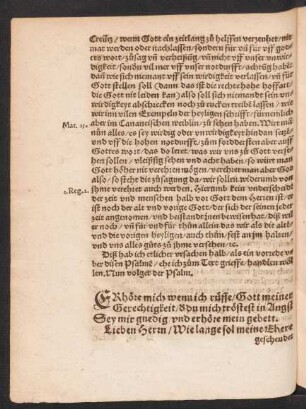 Creütz / wenn Gott ein zeitlang zů helffen verzeühet / nit
mat werden oder nachlassen / sondern für vñ für vff got-
tes wort / zůsag vñ verheissung / vñ nicht vff vnser vnwir-
digkeit / sonder vil mer vff vnser notdurfft / achtũg habẽ
dañ wie sich niemant vff sein wirdigkeit verlassen / vñ für
Gott stellen soll (dann das ist die rechte hohe hoffart /
die Gott nit leiden kan) also soll sich niemandt sein vn-
wirdigkeyt abschrecken noch zů rucken treibẽ lassen / wie
wir im vilen Exempeln der heyligen schrifft / fürnemlich
Mat. 15.
aber im Cananeischen weiblin / zů sehen haben. Wirt mã
nũn alles / es sey wirdig oder vnwirdigkeyt hindan setzẽ /
vnd vff die hohen notdurfft / zům fordersten aber auff
Gottes wort / das do leret / was wir vns zů Gott verse-
hen sollen / vleissig sehen vnd acht haben / so würt man
Gott höher nit vereeren mögen / vereert man aber Gott
also / so stehet da die zůsagung das wir sollen widerumb von
2. Reg. 2.
jhme vereehrt auch werden. Hierumb kein vnderscheidt
der zeit vnd menschen halb vor Gott dem Herren ist / er
ist noch der alt vnd vorige Gott / der sich der seinen jeder
zeit angenomen / vnd beistandt jnen bewisen hat / diß wil
er noch / vñ für vnd für thũn allein das wir als die alte
vnd die vorigen heyligen auch thũn / fest an jm halten /
vnd vns alles gůts zů jhme versehen / ꝛc.
Diß hab ich etlicher vrsachen halb / als ein vorrede vo
der disen Psalmẽ / ehe ich zům Text grieffe / handlen wöl
len. Nun volget der Psalm.
ERhöre mich wenn ich rüffe / Gott meiner
Gerechtigkeit / ð du mich tröstest in Angst
Sey mir gnedig vnd erhöre mein gebett.
Lieben Herrn / Wie lange sol meine Ehere
geschendet